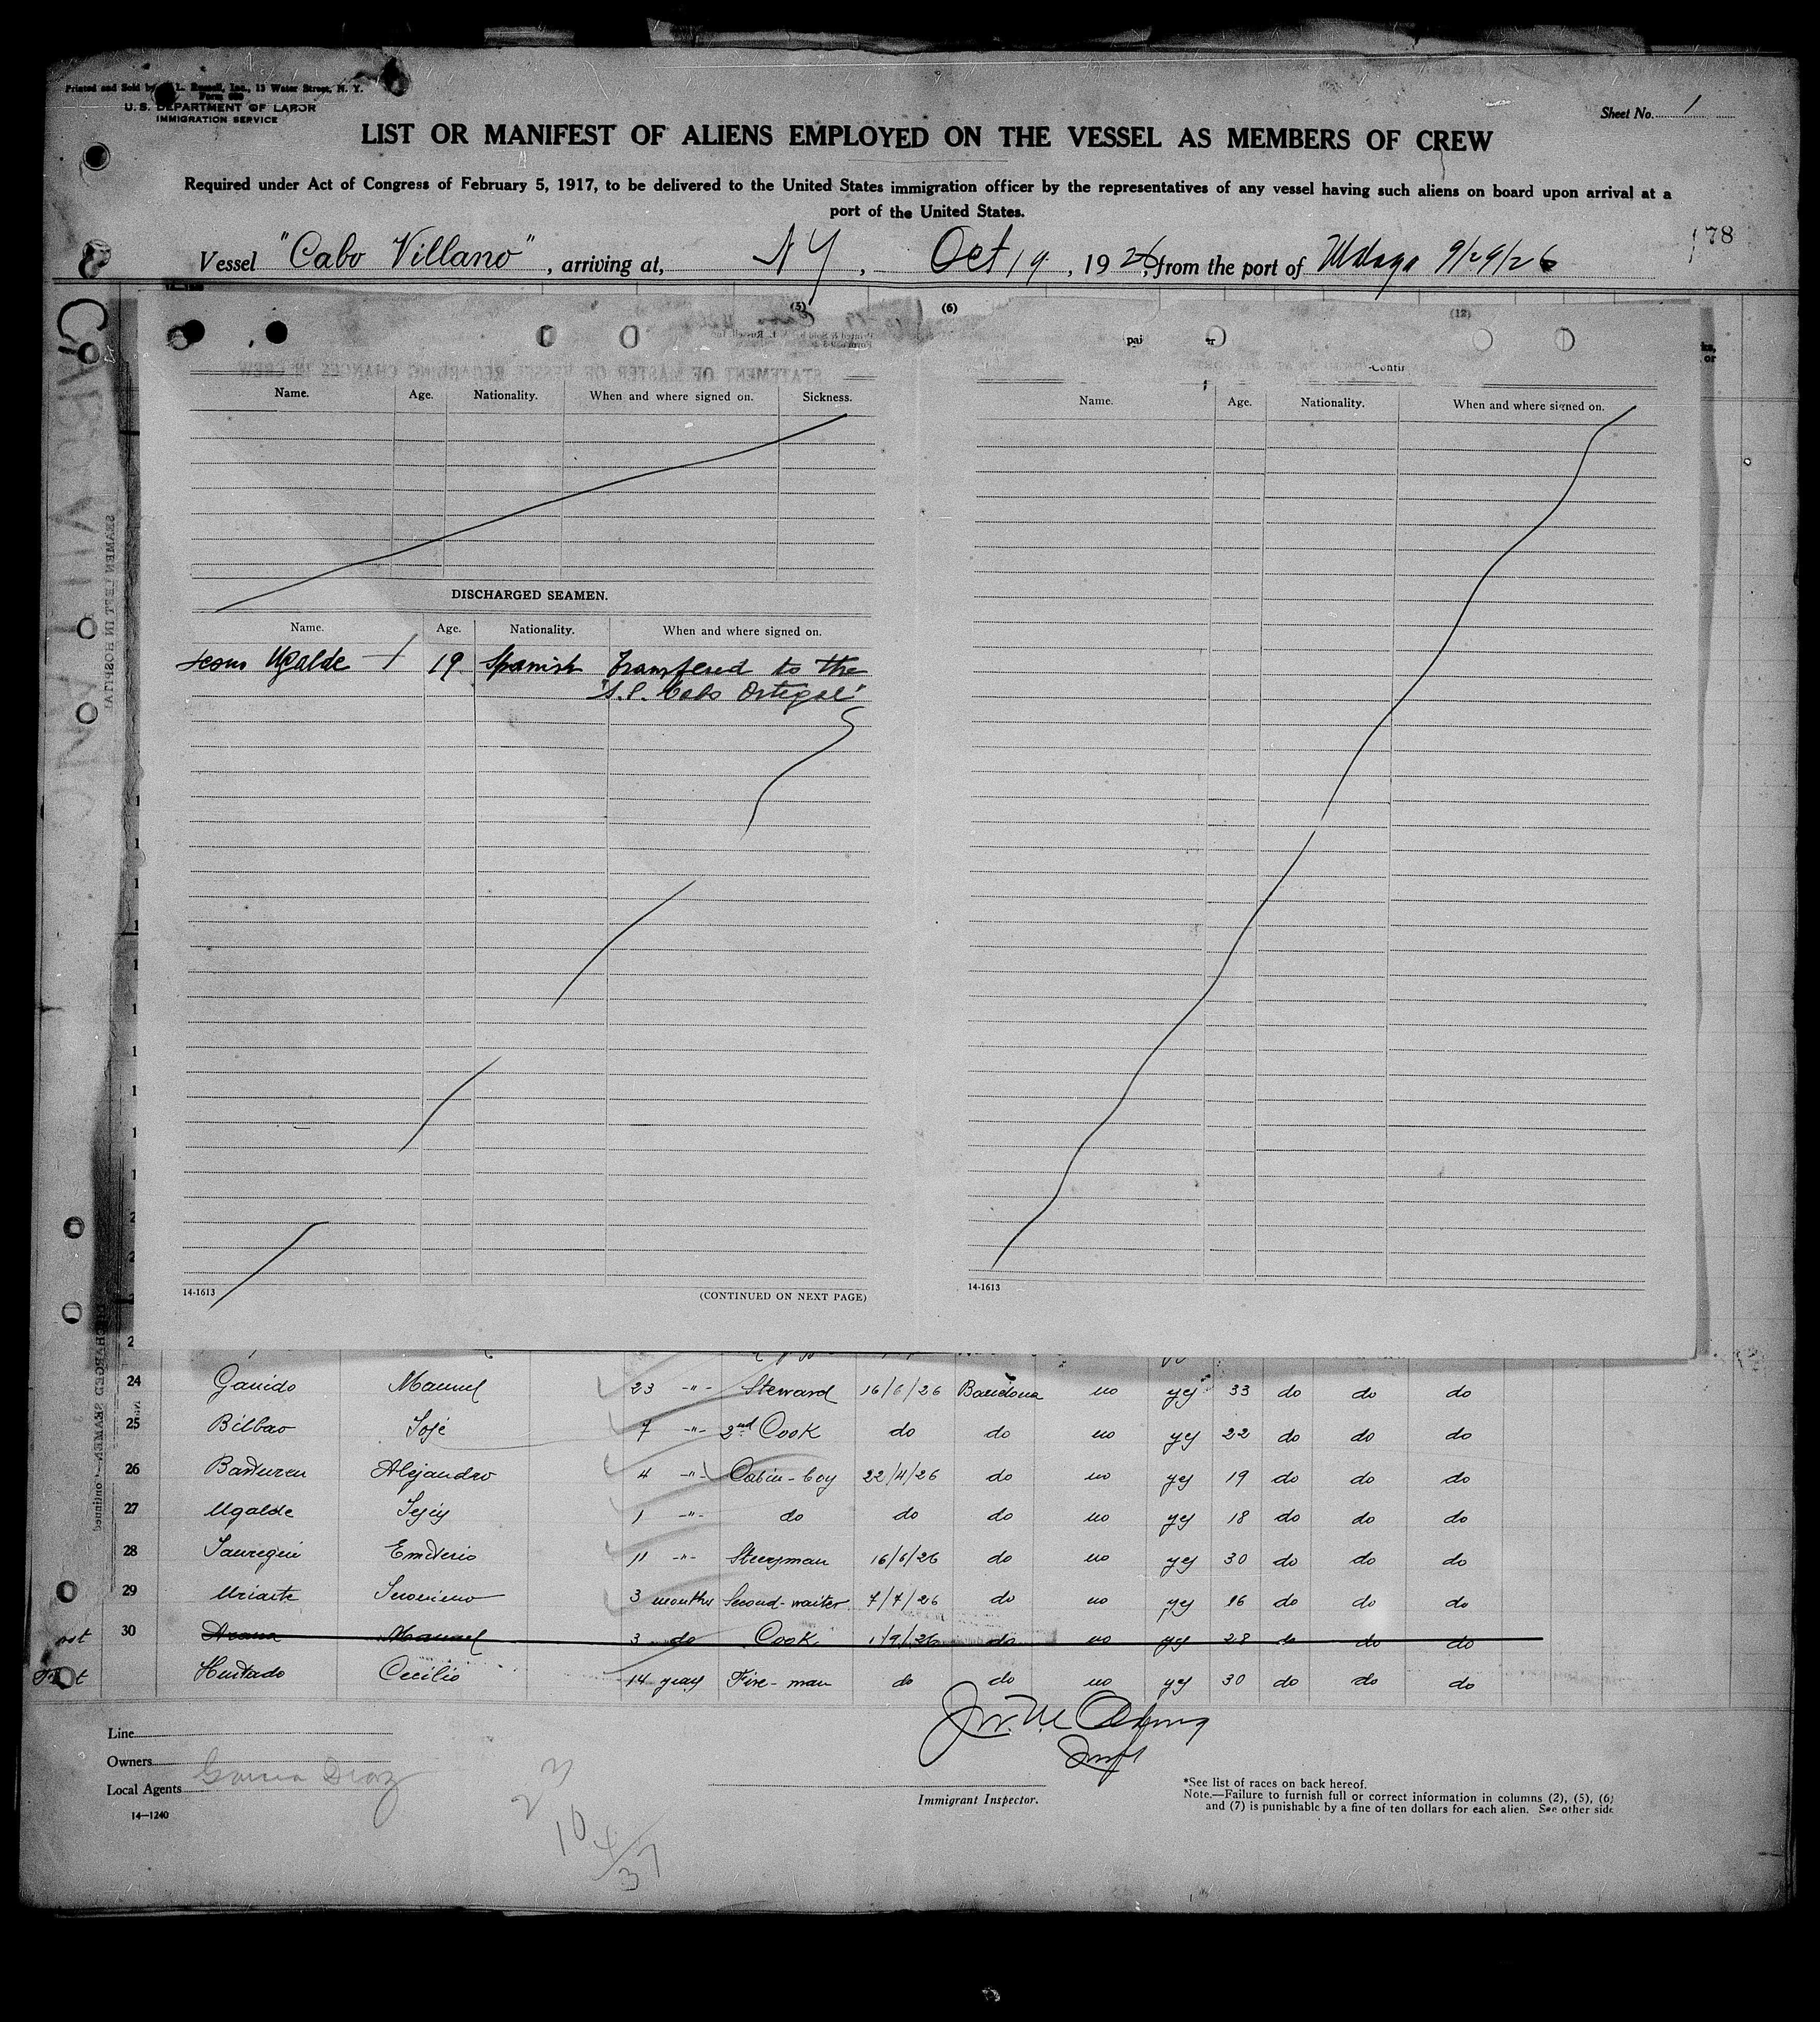 Printed and Sold by L. Russell, Inc., 13 Water Street, N. Y.
U. S. DEPARTMENT OF LABOR
IMMIGRATION SERVICE
Sheet No. 1
LIST OR MANIFEST OF ALIENS EMPLOYED ON THE VESSEL AS MEMBERS OF CREW
Required under Act of Congress of February 5, 1917, to be delivered to the United States immigration officer by the representatives of any vessel having such aliens on board upon arrival at a
port of the United States.
178
Vessel "Cabo Villano", arriving at, NY, Oct 19, 1926, from the port of Malaga 9/29/26
CABO VILLANO
(5) (6) (12)
Name. Age. Nationality. When and where signed on. Sickness.
DISCHARGED SEAMEN.
Name. Age. Nationality. When and where signed on.
Jesus Ugalde 19 Spanish Transfered to the
"S.S. Cabo Ortegal"
14-1613 (CONTINUED ON NEXT PAGE)
Name. Age. Nationality. When and where signed on.
14-1613
SEAMEN LEFT IN HOSPITAL
DISCHARGED SEAMEN—Continued
24 Garrido Manuel 23 -"- Steward 16/6/26 Barcelona no yes 33 do do do
25 Bilbao José 7 -"- 2nd Cook do do no yes 22 do do do
26 Basturen Alejandro 4 -"- Cabin-boy 22/4/26 do no yes 19 do do do
27 Ugalde Jesús 1 -"- do do do no yes 18 do do do
28 Jauregui Emeterio 11 -"- Steersman 16/6/26 do no yes 30 do do do
29 Uriarte Jeronimo 3 months Second-waiter 7/7/26 do no yes 16 do do do
30 Arana Manuel 3 do Cook 1/9/26 do no yes 28 do do do
Hurtado Cecilio 14 years Fire-man do do no yes 30 do do do
Line
Owners
Local Agents Garcia Diaz
14—1240
10 4/37
Immigrant Inspector.
*See list of races on back hereof.
Note.—Failure to furnish full or correct information in columns (2), (5), (6)
and (7) is punishable by a fine of ten dollars for each alien. See other side